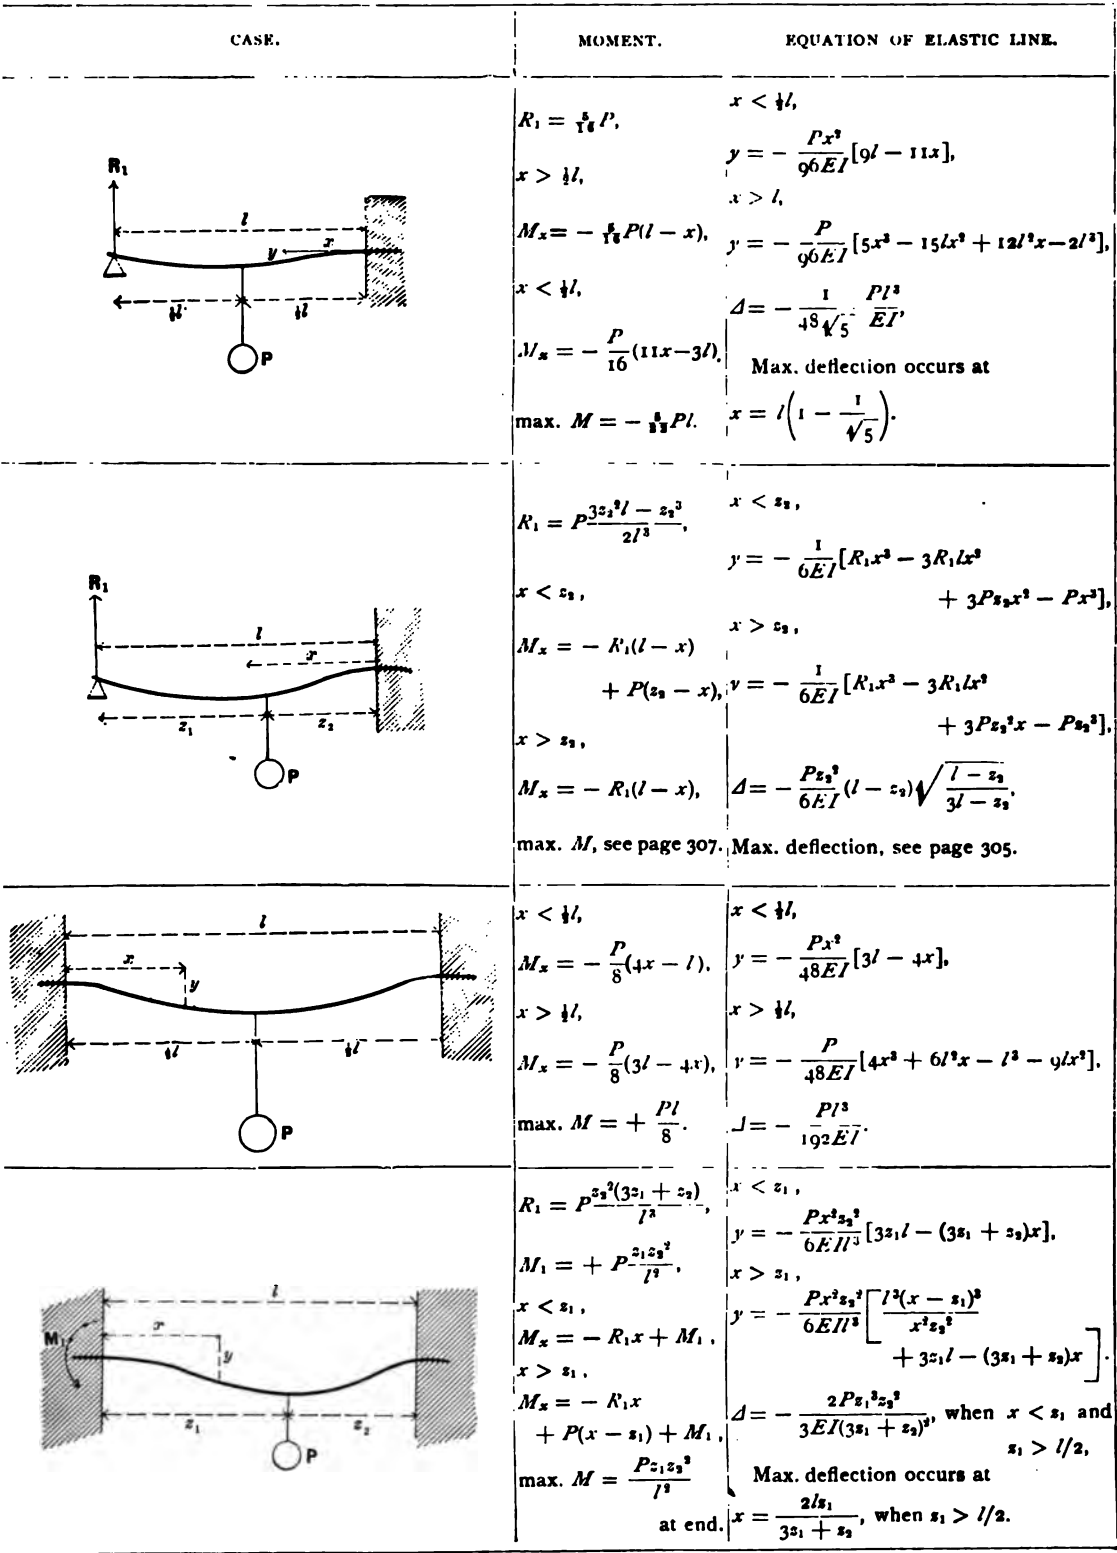 CASE. MOMENT. EQUATION OF ELASTIC LINE.
R₁
l
y x
½l ½l
P
R₁ = 5/16 P,
x > ½l,
Mₓ = − 5/16 P(l − x),
x < ½l,
Mₓ = − P/16 (11x−3l),
max. M = − 5/32 Pl.
x < ½l,
y = − Px²/96EI [9l − 11x],
x > l,
y = − P/96EI [5x³ − 15lx² + 12l²x−2l³],
Δ = − 1/48√5 Pl³/EI,
Max. deflection occurs at
x = l(1 − 1/√5).
R₁
l
x
z₁ z₂
P
R₁ = P 3z₂²l − z₂³/2l³,
x < z₂,
Mₓ = − R₁(l − x)
+ P(z₂ − x),
x > z₂,
Mₓ = − R₁(l − x),
max. M, see page 307.
x < z₂,
y = − 1/6EI [R₁x³ − 3R₁lx²
+ 3Pz₂x² − Px³],
x > z₂,
y = − 1/6EI [R₁x³ − 3R₁lx²
+ 3Pz₂²x − Pz₂³],
Δ = − Pz₂²/6EI (l − z₂)√(l − z₂/3l − z₂),
Max. deflection, see page 305.
l
x
y
½l ½l
P
x < ½l,
Mₓ = − P/8 (4x − l),
x > ½l,
Mₓ = − P/8 (3l − 4x),
max. M = + Pl/8.
x < ½l,
y = − Px²/48EI [3l − 4x],
x > ½l,
y = − P/48EI [4x³ + 6l²x − l³ − 9lx²],
Δ = − Pl³/192EI.
l
x
M₁
y
z₁ z₂
P
R₁ = P z₂²(3z₁ + z₂)/l³,
M₁ = + P z₁z₂²/l²,
x < z₁,
Mₓ = − R₁x + M₁,
x > z₁,
Mₓ = − R₁x
+ P(x − z₁) + M₁,
max. M = Pz₁z₂²/l²
at end.
x < z₁,
y = − Px²z₂²/6EIl³ [3z₁l − (3z₁ + z₂)x],
x > z₁,
y = − Px²z₂²/6EIl³ [l³(x − z₁)³/x²z₂²
+ 3z₁l − (3z₁ + z₂)x].
Δ = − 2Pz₁³z₂²/3EI(3z₁ + z₂)², when x < z₁ and
z₁ > l/2,
Max. deflection occurs at
x = 2lz₁/3z₁ + z₂, when z₁ > l/2.